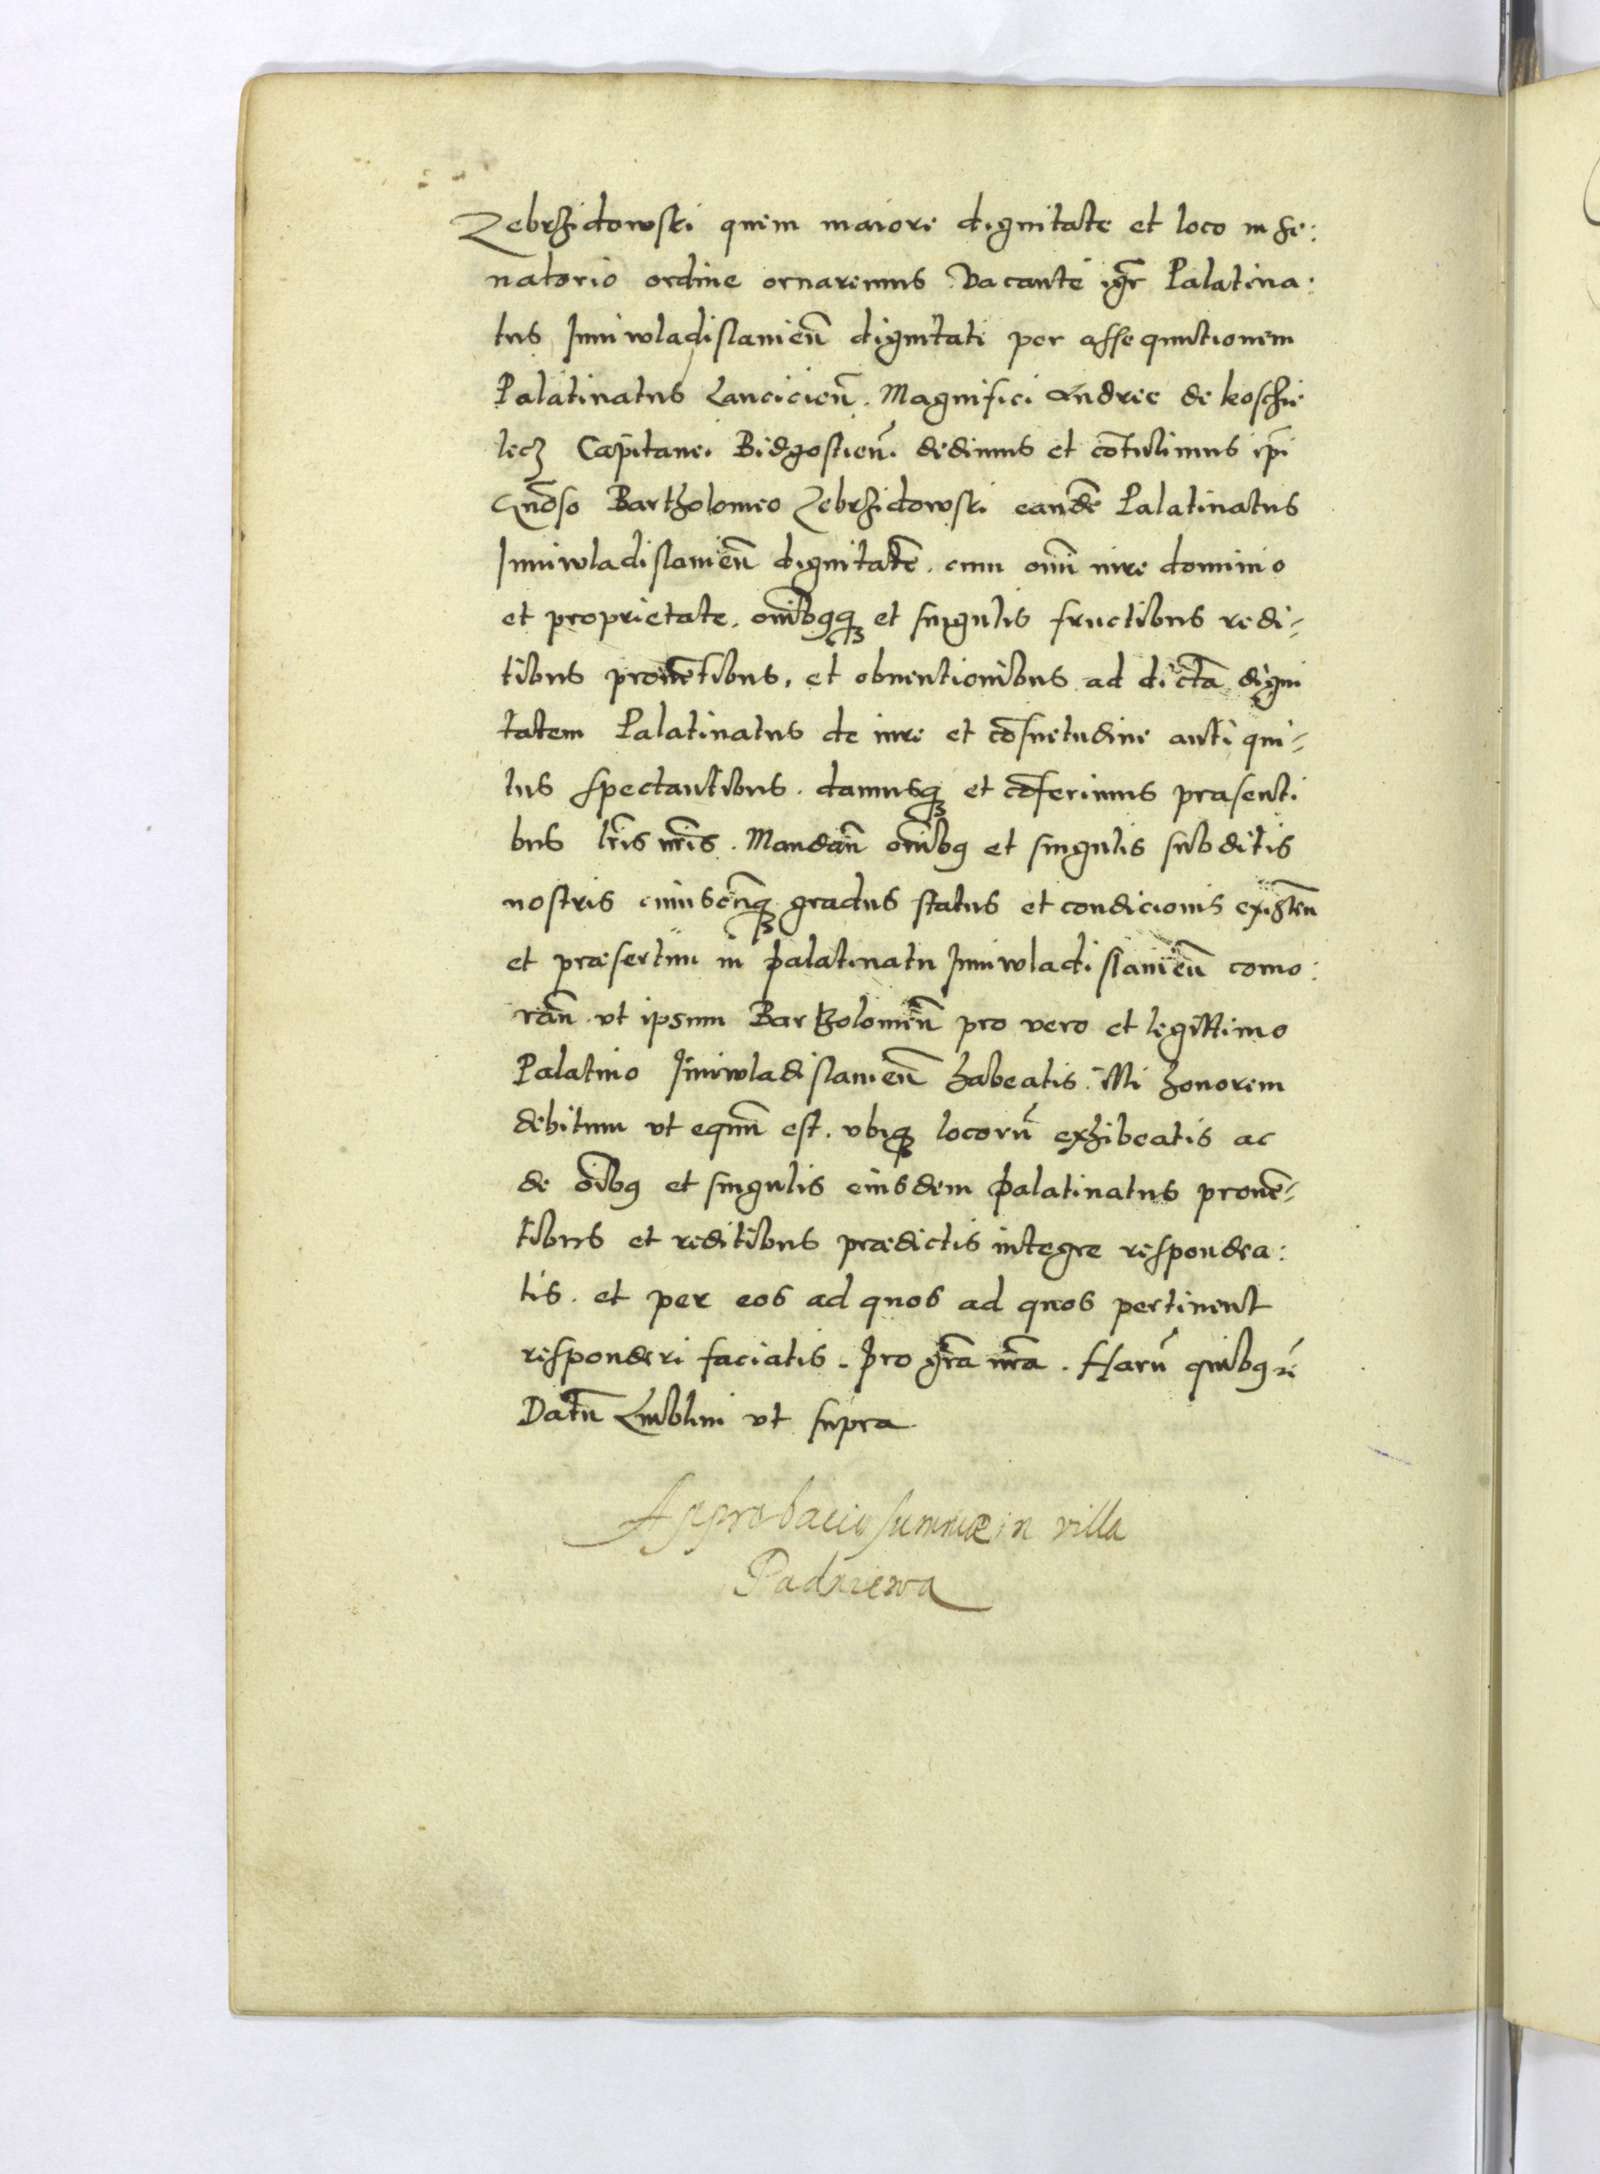 Zebrzidowski quem maiore dignitate et loco in se:
natorio ordine ornaremus Vacante igr̄ Palatina:
tus Iuniwladislauieñ dignitati per assequutionem
Palatinatus Lancicieñ. Magnifici Andree de koschie
lecz Capitanei Bidgostieñ. dedimus et cōtulimus ip̄i
Gn̄oso Bartholomeo Zebrzidowski eandē Palatinatus
Iuniwladislauieñ dignitatē. cum om̄i iure dominio
et proprietate. om̄ibusq; et singulis fructibus redi-
tibus prouētibus, et obuentionibus ad dictā digni
tatem Palatinatus de iure et cōsuetudine antiqui-
tus spectantibus. damusq; et cōferimus præsenti
bus l̄ris n̄ris. Mandañ om̄ibus et singulis subditis
nostris cuiuscūq; gradus status et condicionis existeñ
et præsertim in palatinatu Iuniwladislauieñ como:
rañ vt ipsum Bartholomeū pro vero et legittimo
Palatino Iuniwladislauieñ habeatis. Illi honorem
debitum vt equū est. vbiq; locorū exhibeatis ac
de oībus et singulis eiusdem palatinatus prouē-
tibus et reditibus prædictis integre respondea:
tis. et per eos ad quos ad quos pertinent
responderi faciatis. pro gr̄a nr̄a. Harū quibus
Datū Lublini vt supra
Approbacio summæ in villa
Padniewa